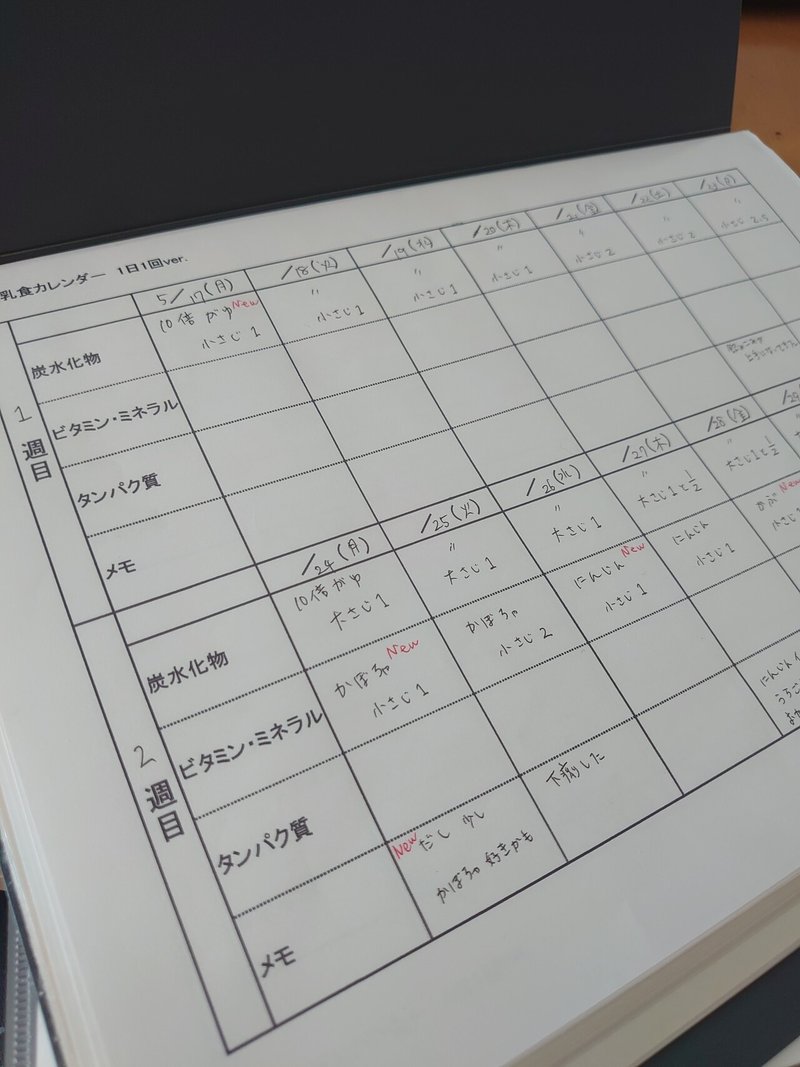 乳食カレンダー 1日1回ver.
5/17(月) /18(火) /19(水) /20(木) /21(金) /22(土) /23(日)
1週目
炭水化物
10倍がゆ New 〃 〃 〃 〃 〃 〃
小さじ1 小さじ1 小さじ1 小さじ1 小さじ2 小さじ2 小さじ2.5
ビタミン・ミネラル
タンパク質
メモ
/24(月) /25(火) /26(水) /27(木) /28(金) /29
2週目
炭水化物
10倍がゆ 〃 〃 〃 〃
大さじ1 大さじ1 大さじ1 大さじ1と1/2 大さじ1と1/2
ビタミン・ミネラル
かぼちゃ New かぼちゃ にんじん New にんじん かぶ New
小さじ1 小さじ2 小さじ1 小さじ1 小さじ1
タンパク質
メモ
New だし 少し
かぼちゃ 好きかも
下痢した
にんじん